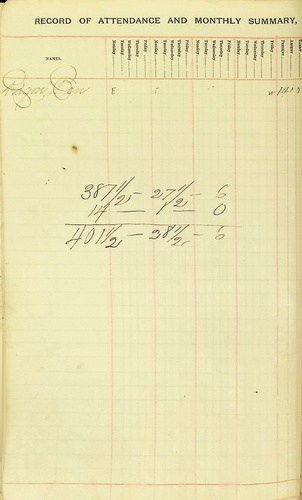 RECORD OF ATTENDANCE AND MONTHLY SUMMARY,
NAMES. Monday Tuesday Wednesday Thursday Friday Monday Tuesday Wednesday Thursday Friday Monday Tuesday Wednesday Thursday Friday Monday Tuesday Wednesday Thursday Friday Present Absent Tardy
E 14 1 0
387 1/2 - 27 1/2 - 6
14 — 1 — 0
401 1/2 - 28 1/2 - 6